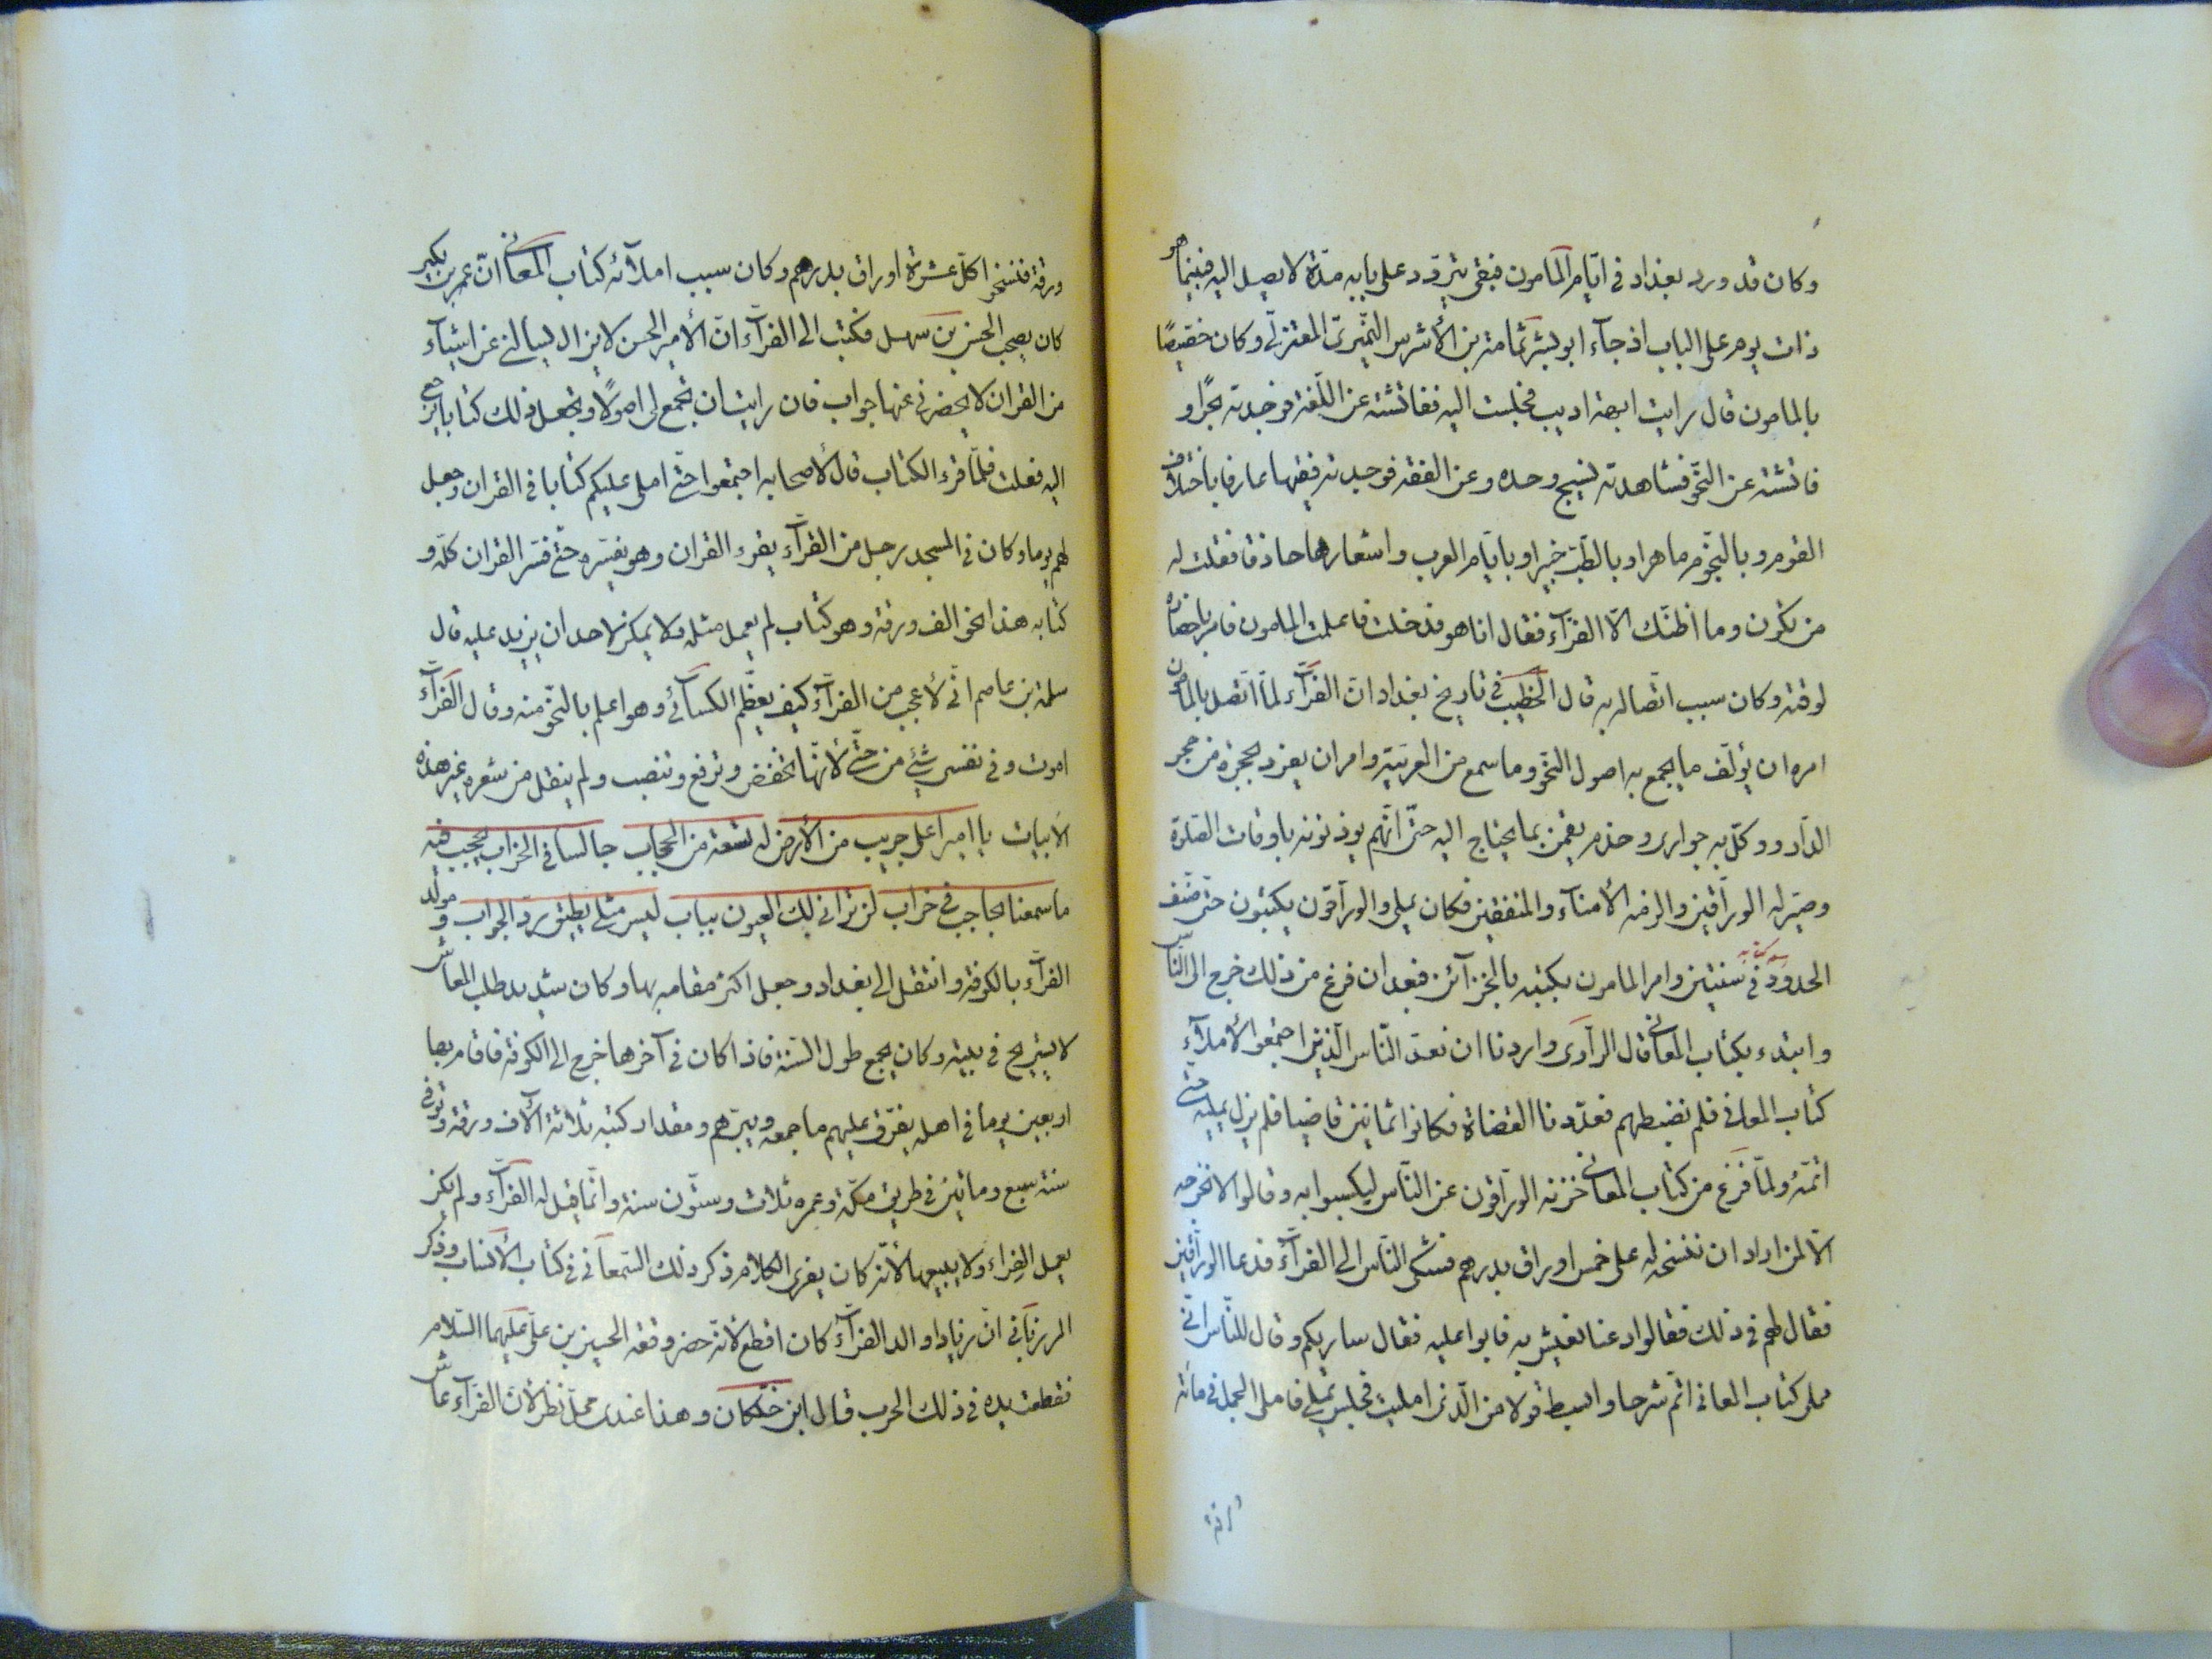 وكان قد ورد بغداد في ايّام المأمون فبقى يتردّد على بابه مدّة لا يصل اليه فبينما هو
ذات يوم على الباب اذ جآء ابو بشر ثمامة بن الأشرس النّميرىّ المعتزلّي وكان خصّيصًا
بالمامون قال رايت ابهة اديب فجلست اليه ففاتشته عن اللّغة فوجدته بحرًا و
فاتشته عن النّحو فشاهدته نسيج وحده وعن الفقه فوجدته فقيها عارفا باختلاف
القوم وبالنّجوم ماهرا وبالطّبّ خبيرا وبايّام العرب واشعارها حاذقا فقلت له
من تكون وما اظنّك الّا الفرّآء فقال انا هو فدخلت فاعلمت المامون فامر باحضاره
لوقته وكان سبب اتّصاله به قال الخطيب في تاريخ بغداد انّ الفرّآء لمّا اتّصل بالمامون
امره ان يؤلّف ما يجمع به اصول النّحو وما سمع من العربيّة وامر ان يفرد بحجرة من حجر
الدّار ووكّل به جوارى وخدم يقمن بما يحتاج اليه حتّى انّهم يوذنونه باوقات الصّلوة
وصيّر له الورّاقين والزمه الأمنآء والمنفقين فكان يملى والورّاقون يكتبون حتّى صنّف
الحدود في سنتين وامر المامون بكتبه بالخزآئن فبعد ان فرغ من ذلك خرج الى النّاس
وابتدء بكتاب المعانى قال الرّاوى واردنا ان نعدّ النّاس الّذين اجتمعوا لأملآء
كتاب المعانى فلم نضبطهم فعدّدنا القضاة فكانوا ثمانين قاضيا فلم يزل يمليه حتّى
اتمّه ولمّا فرغ من كتاب المعانى خزنه الورّاقون عن النّاس ليكسبوا به وقالوا لا نخرجه
الّا لمن اراد ان ننسخه له على خمس اوراق بدرهم فشكى النّاس الى الفرّآء فدعا الورّاقين
فقال لهم في ذلك فقالوا دعنا نعيش به فابوا عليه فقال ساريكم وقال للنّاس انّى
مملى كتاب المعانى اتمّ شرحا وابسط قولا من الّذى امليت فجلس يملى فاملى الجمل في مائة
ورقة فنسخوا كلّ عشرة اوراق بدرهم وكان سبب املآئه كتاب المعانى انّ عمر بن بكير
كان يصحب الحسن بن سهل فكتب الى الفرّآء انّ الأمير الحسن لا يزال ليسألنى عن اشيآء
من القران لا يحضرنى عنها جواب فان رايت ان تجمع لى اصولًا وتجعل ذلك كتابا يرجع
اليه فعلت فلمّا قرء الكتاب قال لأصحابه اجتمعوا حتّى املى عليكم كتابا في القران وجعل
لهم يوما وكان في المسجد رجل من القرّآء يقرء القران وهو يفسّره حتّى فسّر القران كلّه و
كتابه هذا نحو الف ورقة وهو كتاب لم يعمل مثله ولا يمكن لاحد ان يزيد عليه قال
سلمة بن عاصم انّى لأعجب من الفرّآء كيف يعظّم الكسآئى وهو اعلم بالنّحو منه وقال الفرّآء
اموت وفى نفسى شئ من حتّى لأنّها تخفض وترفع وتنصب ولم ينقل من شعره غير هذه
الأبيات يا اميرا على جريب من الأرض له تسعة من الحجاب جالسا في الخراب يحجب فيه
ما سمعنا بحاجب في خراب لن ترانى لك العيون بباب ليس مثلى يطيق ردّ الجواب ومولد
الفرّآء بالكوفة وانتقل الى بغداد وجعل اكثر مقامه بها وكان شديد طلب المعاش
لا يستريح في بيته وكان يجمع طول السّنة فاذا كان في آخرها خرج الى الكوفة فاقام بها
اربعين يوما في اهله يفرّق عليهم ما جمعه ويبرّهم ومقدار كتبه ثلاثة الآف ورقة وتوفّى
سنة سبع ومائتين في طريق مكّة وعمره ثلاث وستّون سنة وانّما قيل له الفرّآء ولم يكن
يعمل الفراء ولا يبيعها لأنّه كان يفرى الكلام ذكر ذلك السّمعانى في كتاب الأنساب وذكر
المرزبانى انّ زيادا والد الفرّآء كان اقطع لأنّه حضر وقعة الحسين بن علىّ عليهما السّلام
فقطعت يده في ذلك الحرب قال ابن خلّكان وهذا عندى محلّ نظر لأنّ الفرّآء عاش